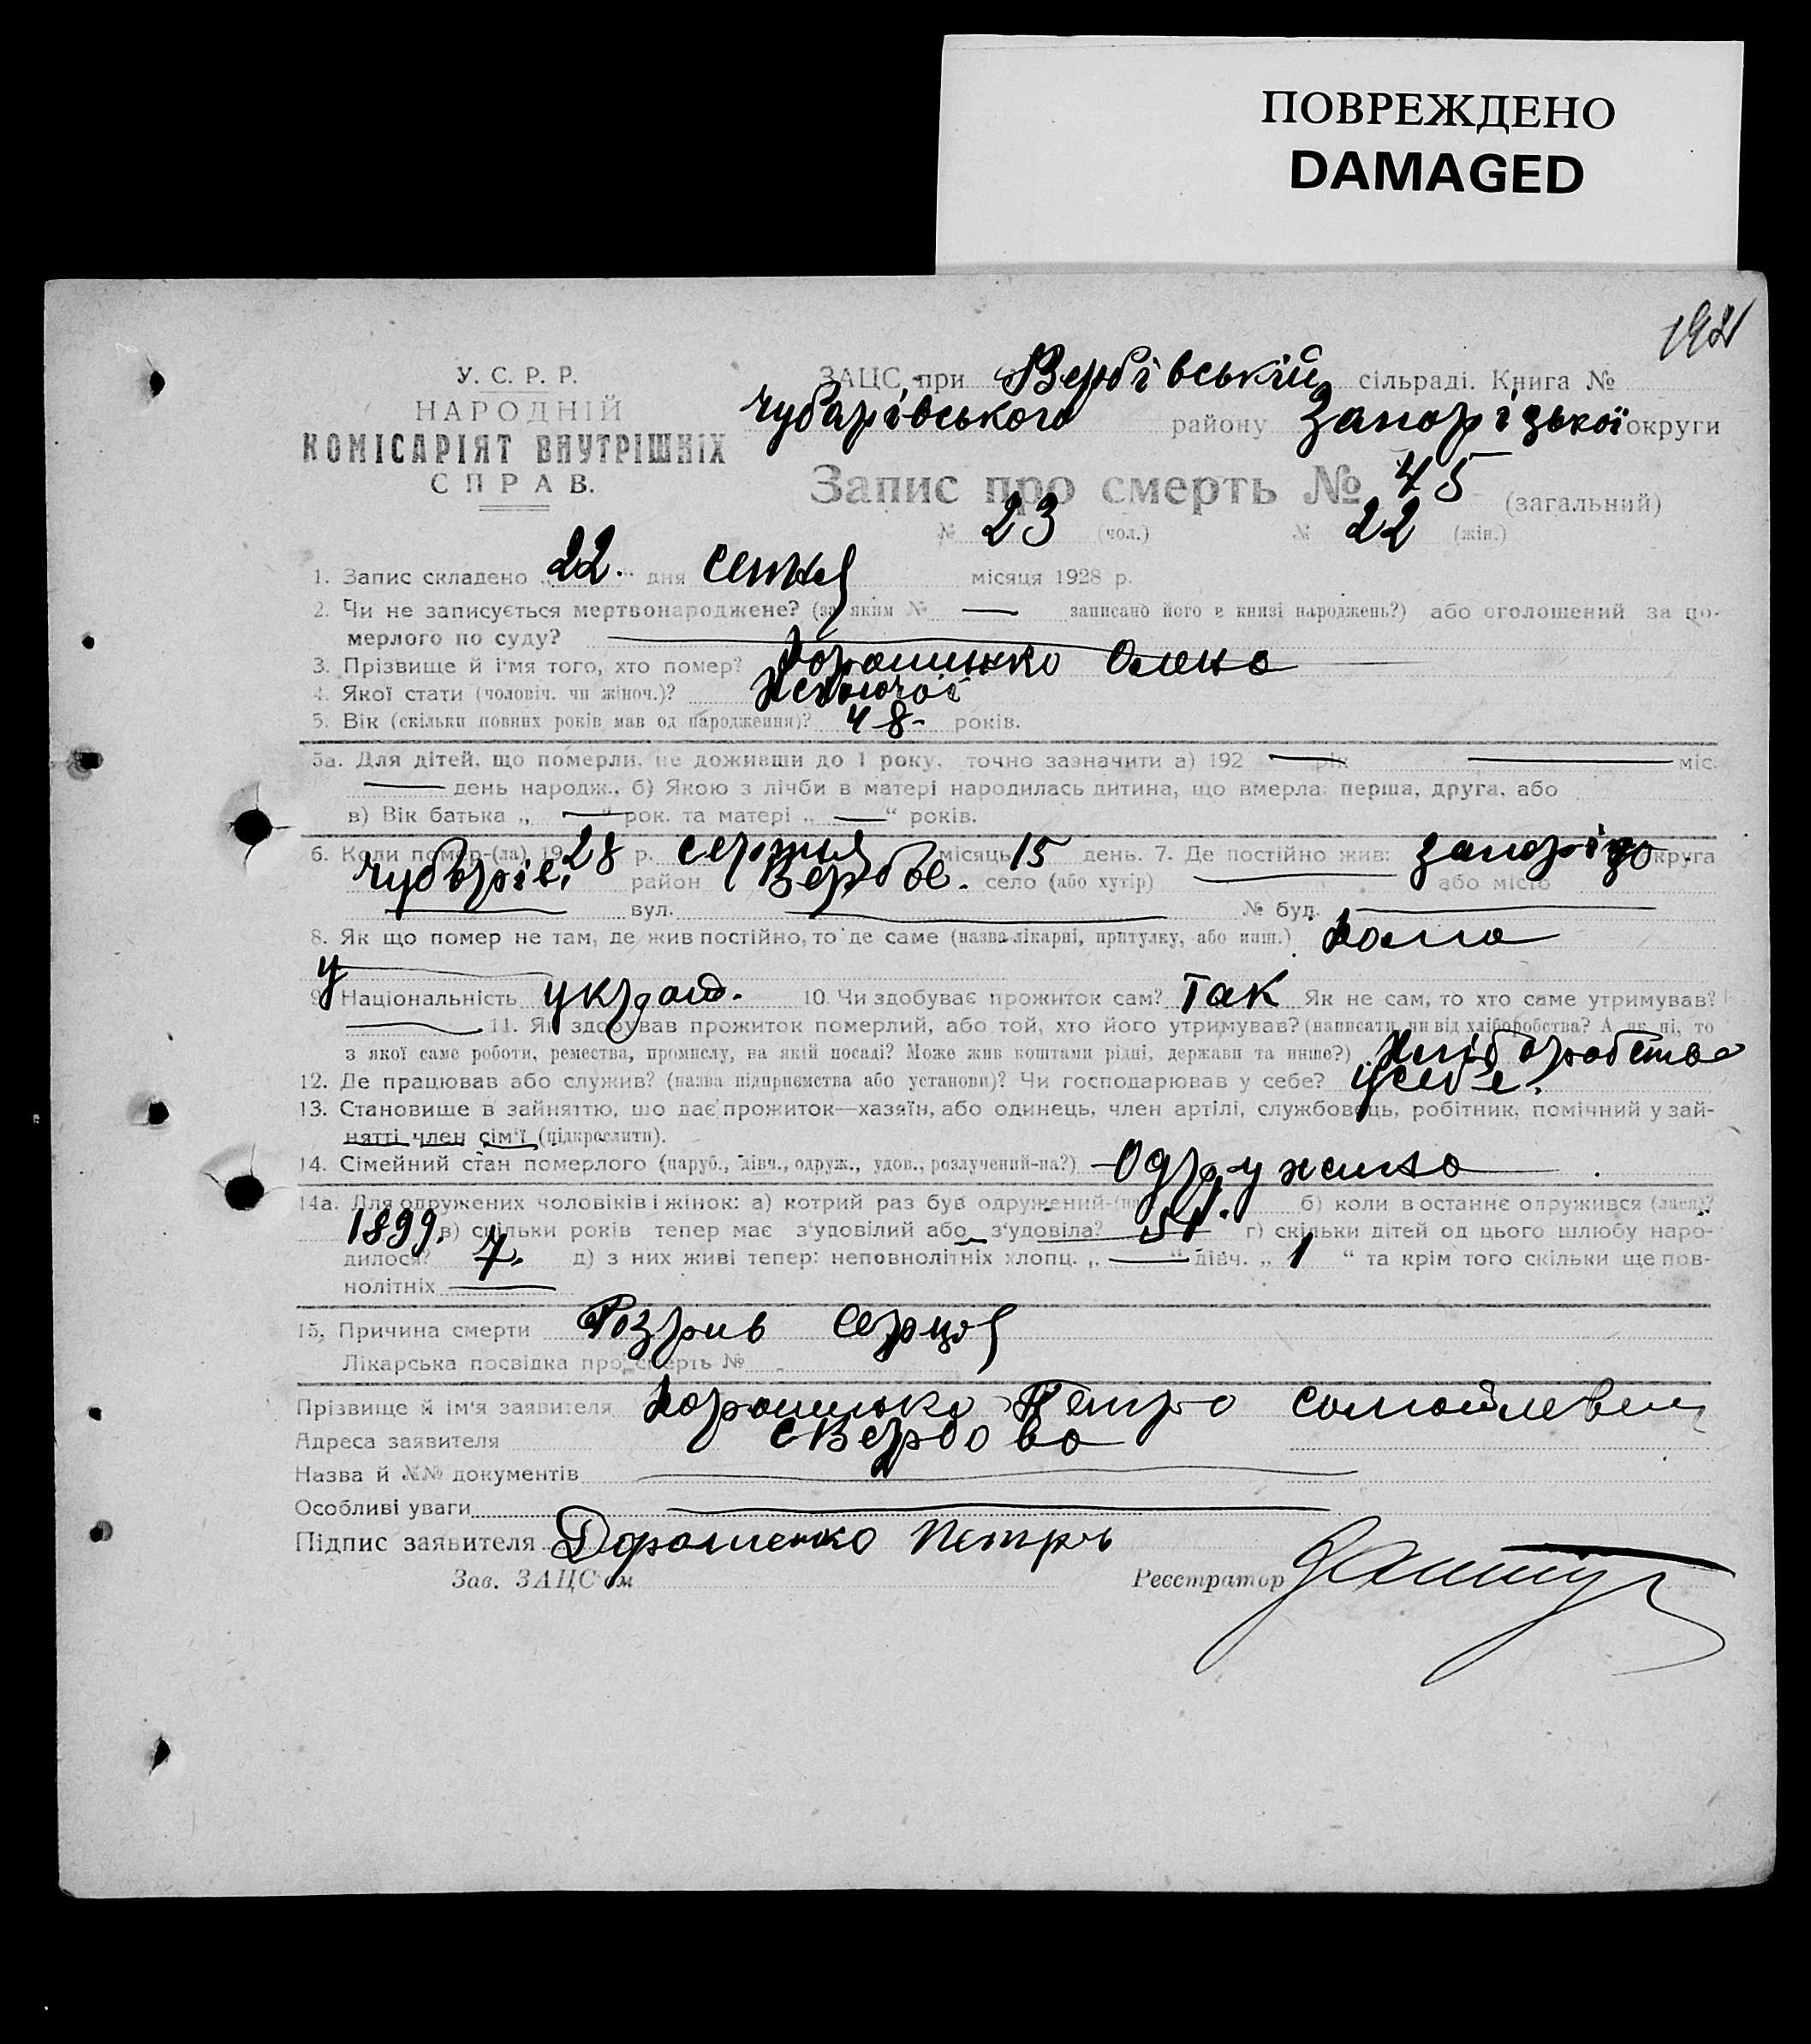 ПОВРЕЖДЕНО
DAMAGED
У. С. Р. Р.
НАРОДНІЙ
КОМІСАРІЯТ ВНУТРІШНІХ
СПРАВ.
ЗАЦС при Вербівській сільраді. Книга №
Чубарівського району Запорізької округи
Запис про смерть № 45 (загальний)
№ 23 (чол.) № 22 (жін.)
1. Запис складено „22.“ дня місяця 1928 р.
2. Чи не записується мертвонароджене? (за яким № — записано його в книзі народжень?) або оголошений за по-
мерлого по суду?
3. Прізвище й ім'я того, хто помер? Дорошинко Олена
4. Якої стати (чоловіч. чи жіноч.)? Жіночої
5. Вік (скільки повних років мав од народження)? 48- років.
5а. Для дітей, що померли, не доживши до 1 року, точно зазначити а) 192 — рік — міс.
— день народж., б) Якою з лічби в матері народилась дитина, що вмерла: перша, друга, або
в) Вік батька „ — “ рок. та матері „ — “ років.
6. Коли помер-(ла) 1928 р. серпня місяць 15 день. 7. Де постійно жив: Запорізь округа
Чубарів. район Вербове. село (або хутір) — або місто
— вул. — № буд. —
8. Як що помер не там, де жив постійно, то де саме (назва лікарні, притулку, або инш.) Дома
у
9. Національність україн. 10. Чи здобуває прожиток сам? Так Як не сам, то хто саме утримував?
— 11. Як здобував прожиток померлий, або той, хто його утримував? (написати, чи від хліборобства? А як ні, то
з якої саме роботи, ремества, промислу, на якій посаді? Може жив коштами рідні, держави та инше?) Хліборобство
12. Де працював або служив? (назва підприємства або установи)? Чи господарював у себе? у себе.
13. Становище в зайняттю, що дає прожиток—хазяїн, або одинець, член артілі, службовець, робітник, помічний у зай-
нятті член сім'ї (підкреслити).
14. Сімейний стан померлого (паруб., дівч., одруж., удов., розлучений-на?) Одружена
14а. Для одружених чоловіків і жінок: а) котрий раз був одружений-(на) 1. б) коли в останнє одружився (лась)?
1899. в) скільки років тепер має з'удовілий або з'удовіла? 51 г) скільки дітей од цього шлюбу наро-
дилося? 7. д) з них живі тепер: неповнолітніх хлопц. „ — “ дівч. „ 1 “ та крім того скільки ще пов-
нолітніх —
15. Причина смерти Розрив серця
Лікарська посвідка про смерть №
Прізвище й ім'я заявителя Дорошинко Петро Самойлевич
Адреса заявителя с Вербова
Назва й №№ документів —
Особливі уваги —
Підпис заявителя Дорошенко Петръ
Зав. ЗАЦС'ом Реєстратор